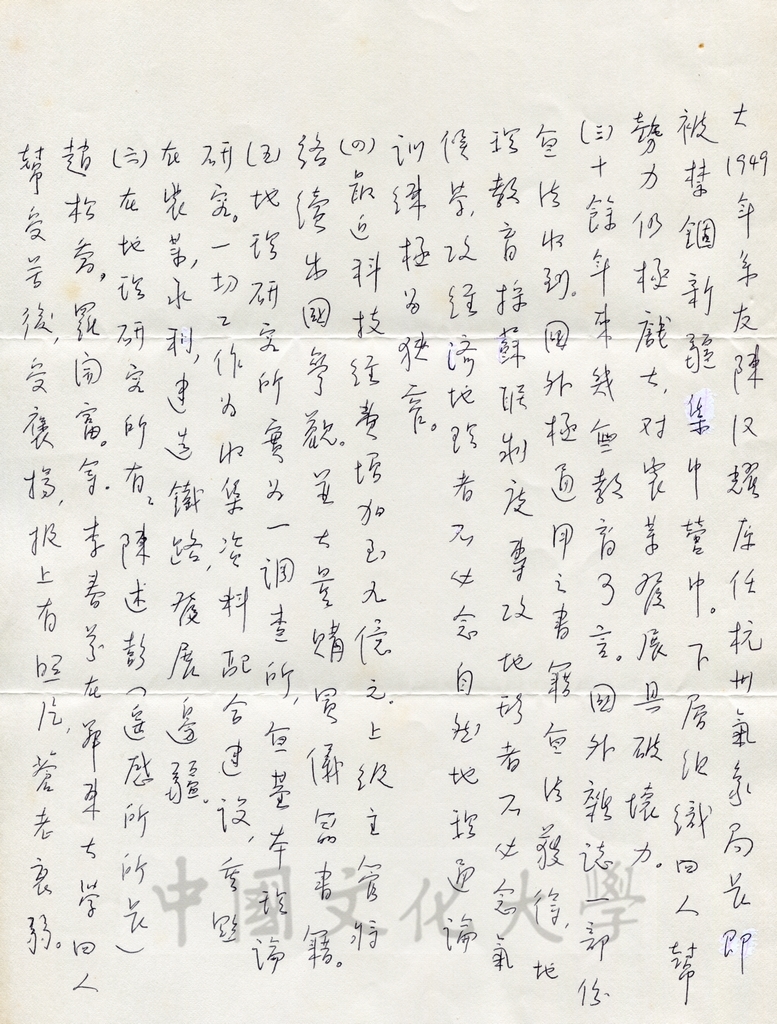 大1949年弟友陳汉耀原任杭州氣象局長即
被禁錮新疆集中營中。下層组織四人幫
勢力仍極龐大,对農業發展具破壞力。
(三)十餘年来幾無教育可言。國外雜誌一部份
無法收到。國外極通用之書籍無法獲得,地
理教育採蘇联制度專攻地形者不必念氣
候學,攻经濟地理者不必念自然地理通論
訓練極为狹窄。
(四)最近科技经費增加至九億元。上级主管将
络續出國參觀。並大量購買儀器書籍。
(五)地理研究所實为一調查所,無基本理論
研究。一切工作为收集资料配合建设,重點
在農業,水利,建造鐵路,發展邊疆。
(六)在地理研究所有:陳述彭(遥感所所長)
趙松喬,羅開富。等.李春芬在華東大學四人
幫受苦後,受褒揚,报上有照片,蒼老衰弱。
中國文化大學